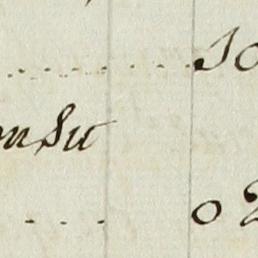 10
onsu
02